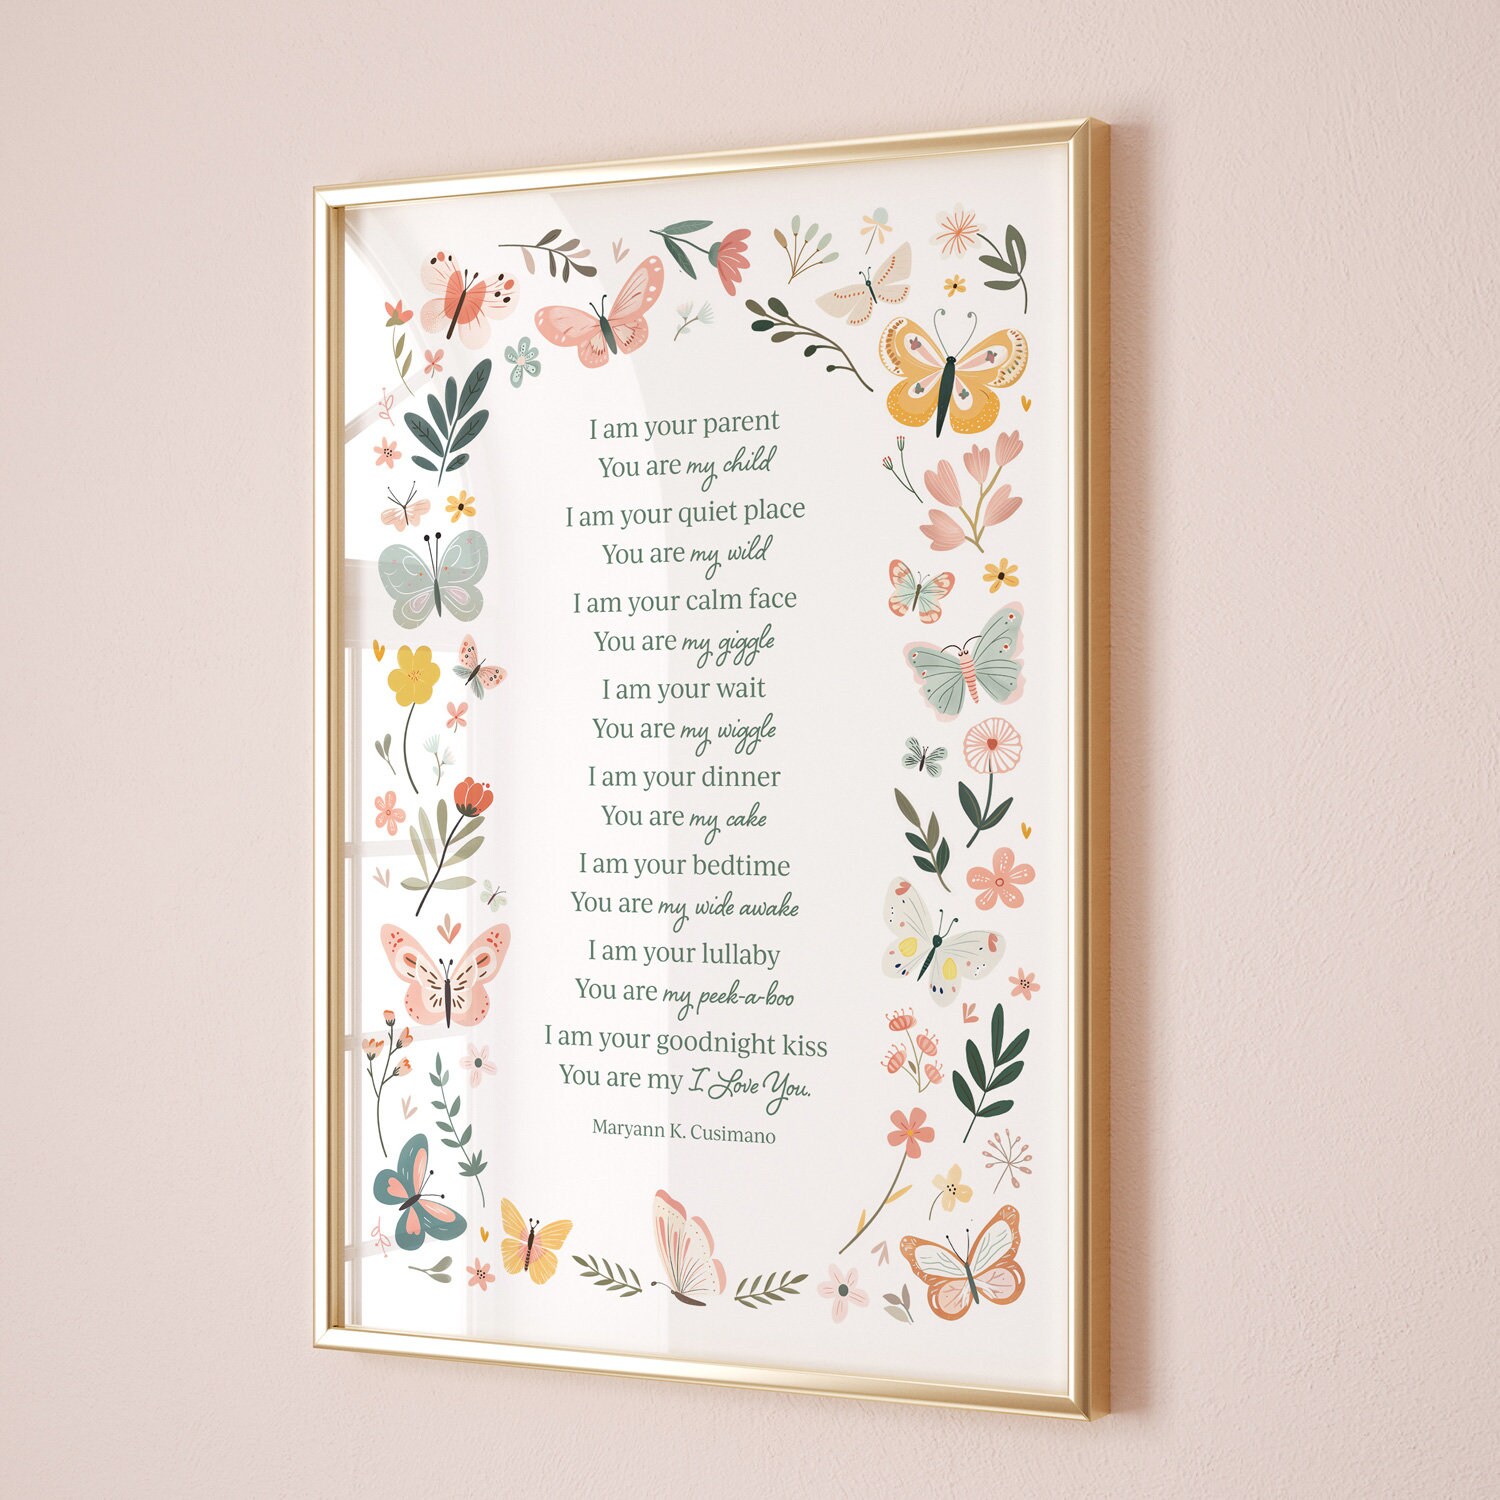 I am your parent
You are my child
I am your quiet place
You are my wild
I am your calm face
You are my giggle
I am your wait
You are my wiggle
I am your dinner
You are my cake
I am your bedtime
You are my wide awake
I am your lullaby
You are my peek-a-boo
I am your goodnight kiss
You are my I Love You.
Maryann K. Cusimano